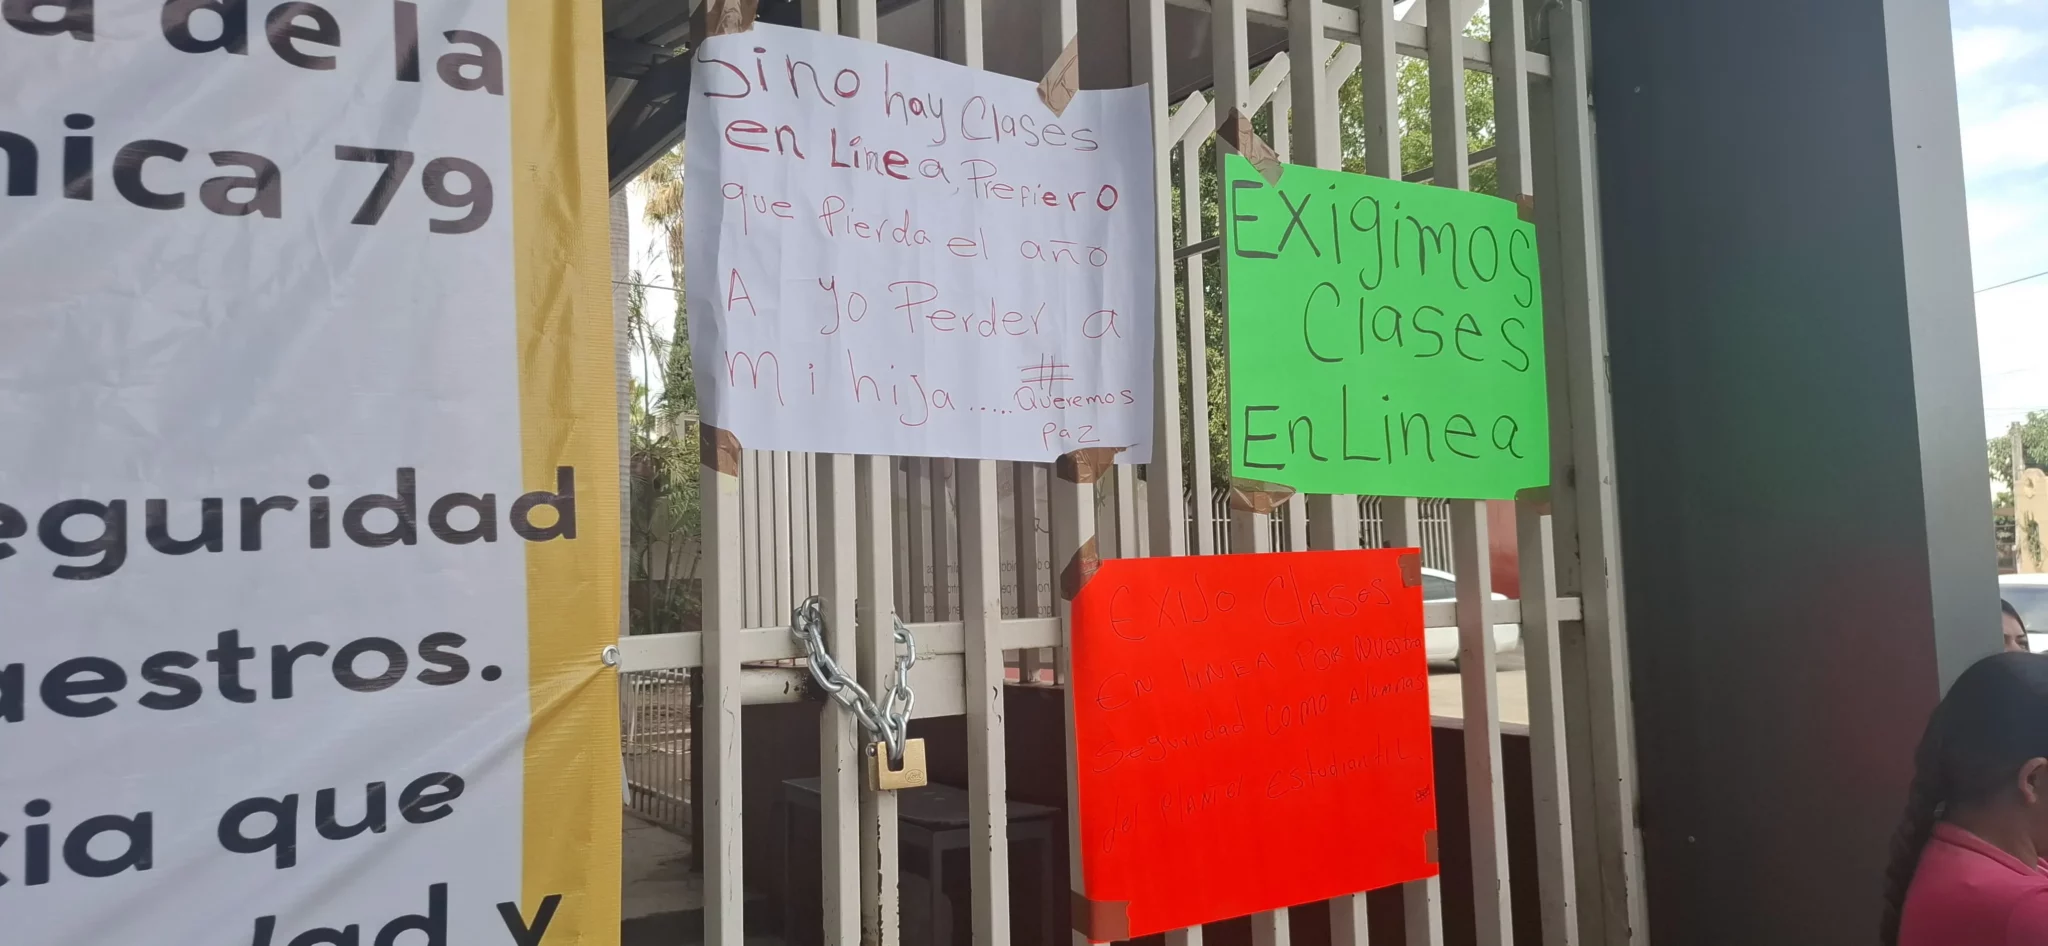 de la
79
que
y
Si no hay Clases
en Linea, Prefiero
que Pierda el año
A yo Perder a
Mi hija..... #
Queremos
paz
EXigimos
Clases
En Linea
EXIJO CLASES
EN LINEA POR NUESTRA
Seguridad COMO Alumnas
del Plantel Estudiantil.